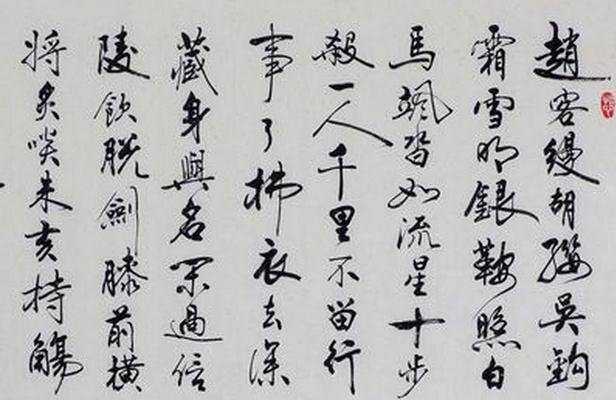 趙客縵胡纓吳鉤
霜雪明銀鞍照白
馬颯沓如流星十步
殺一人千里不留行
事了拂衣去深
藏身與名閑過信
陵飲脫劍膝前橫
將炙啖朱亥持觴